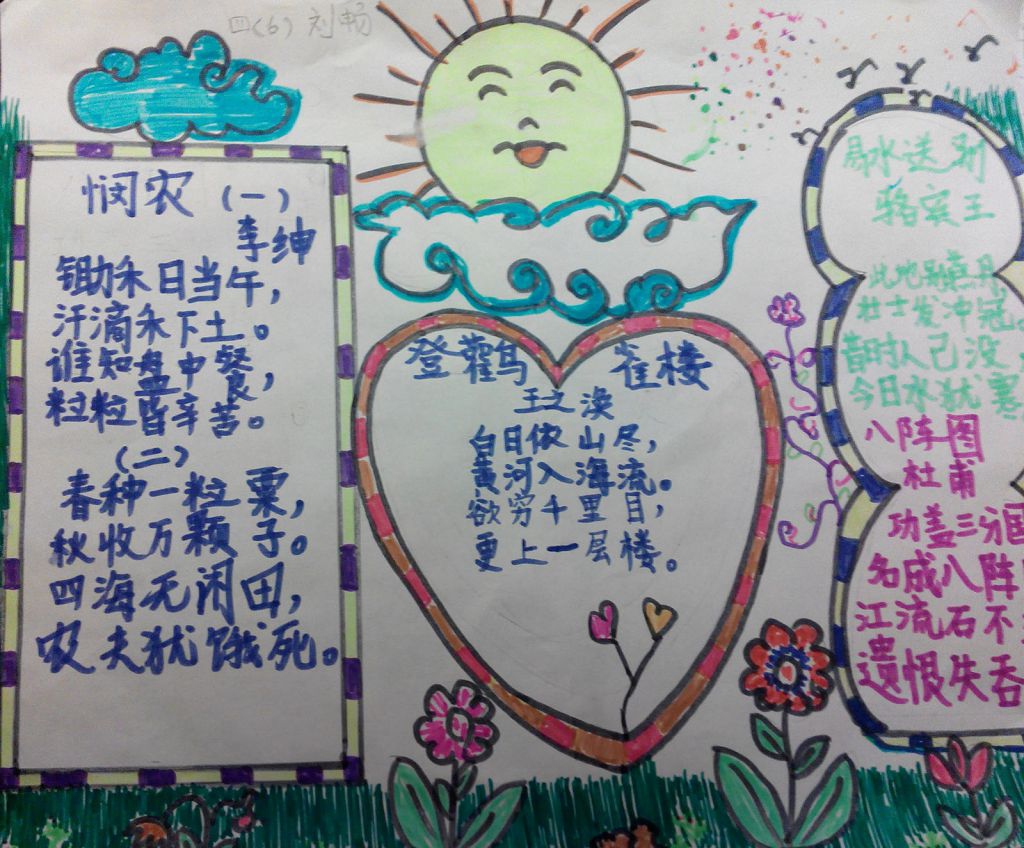 四(6) 刘畅
悯农 (一)
李绅
锄禾日当午,
汗滴禾下土。
谁知盘中餐,
粒粒皆辛苦。
(二)
春种一粒粟,
秋收万颗子。
四海无闲田,
农夫犹饿死。
登鹳雀楼
王之涣
白日依山尽,
黄河入海流。
欲穷千里目,
更上一层楼。
易水送别
骆宾王
此地别燕丹
壮士发冲冠。
昔时人已没,
今日水犹寒
八阵图
杜甫
功盖三分国
名成八阵
江流石不
遗恨失吞